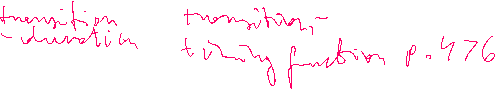 transition
-duration
transition-
timing function p.476